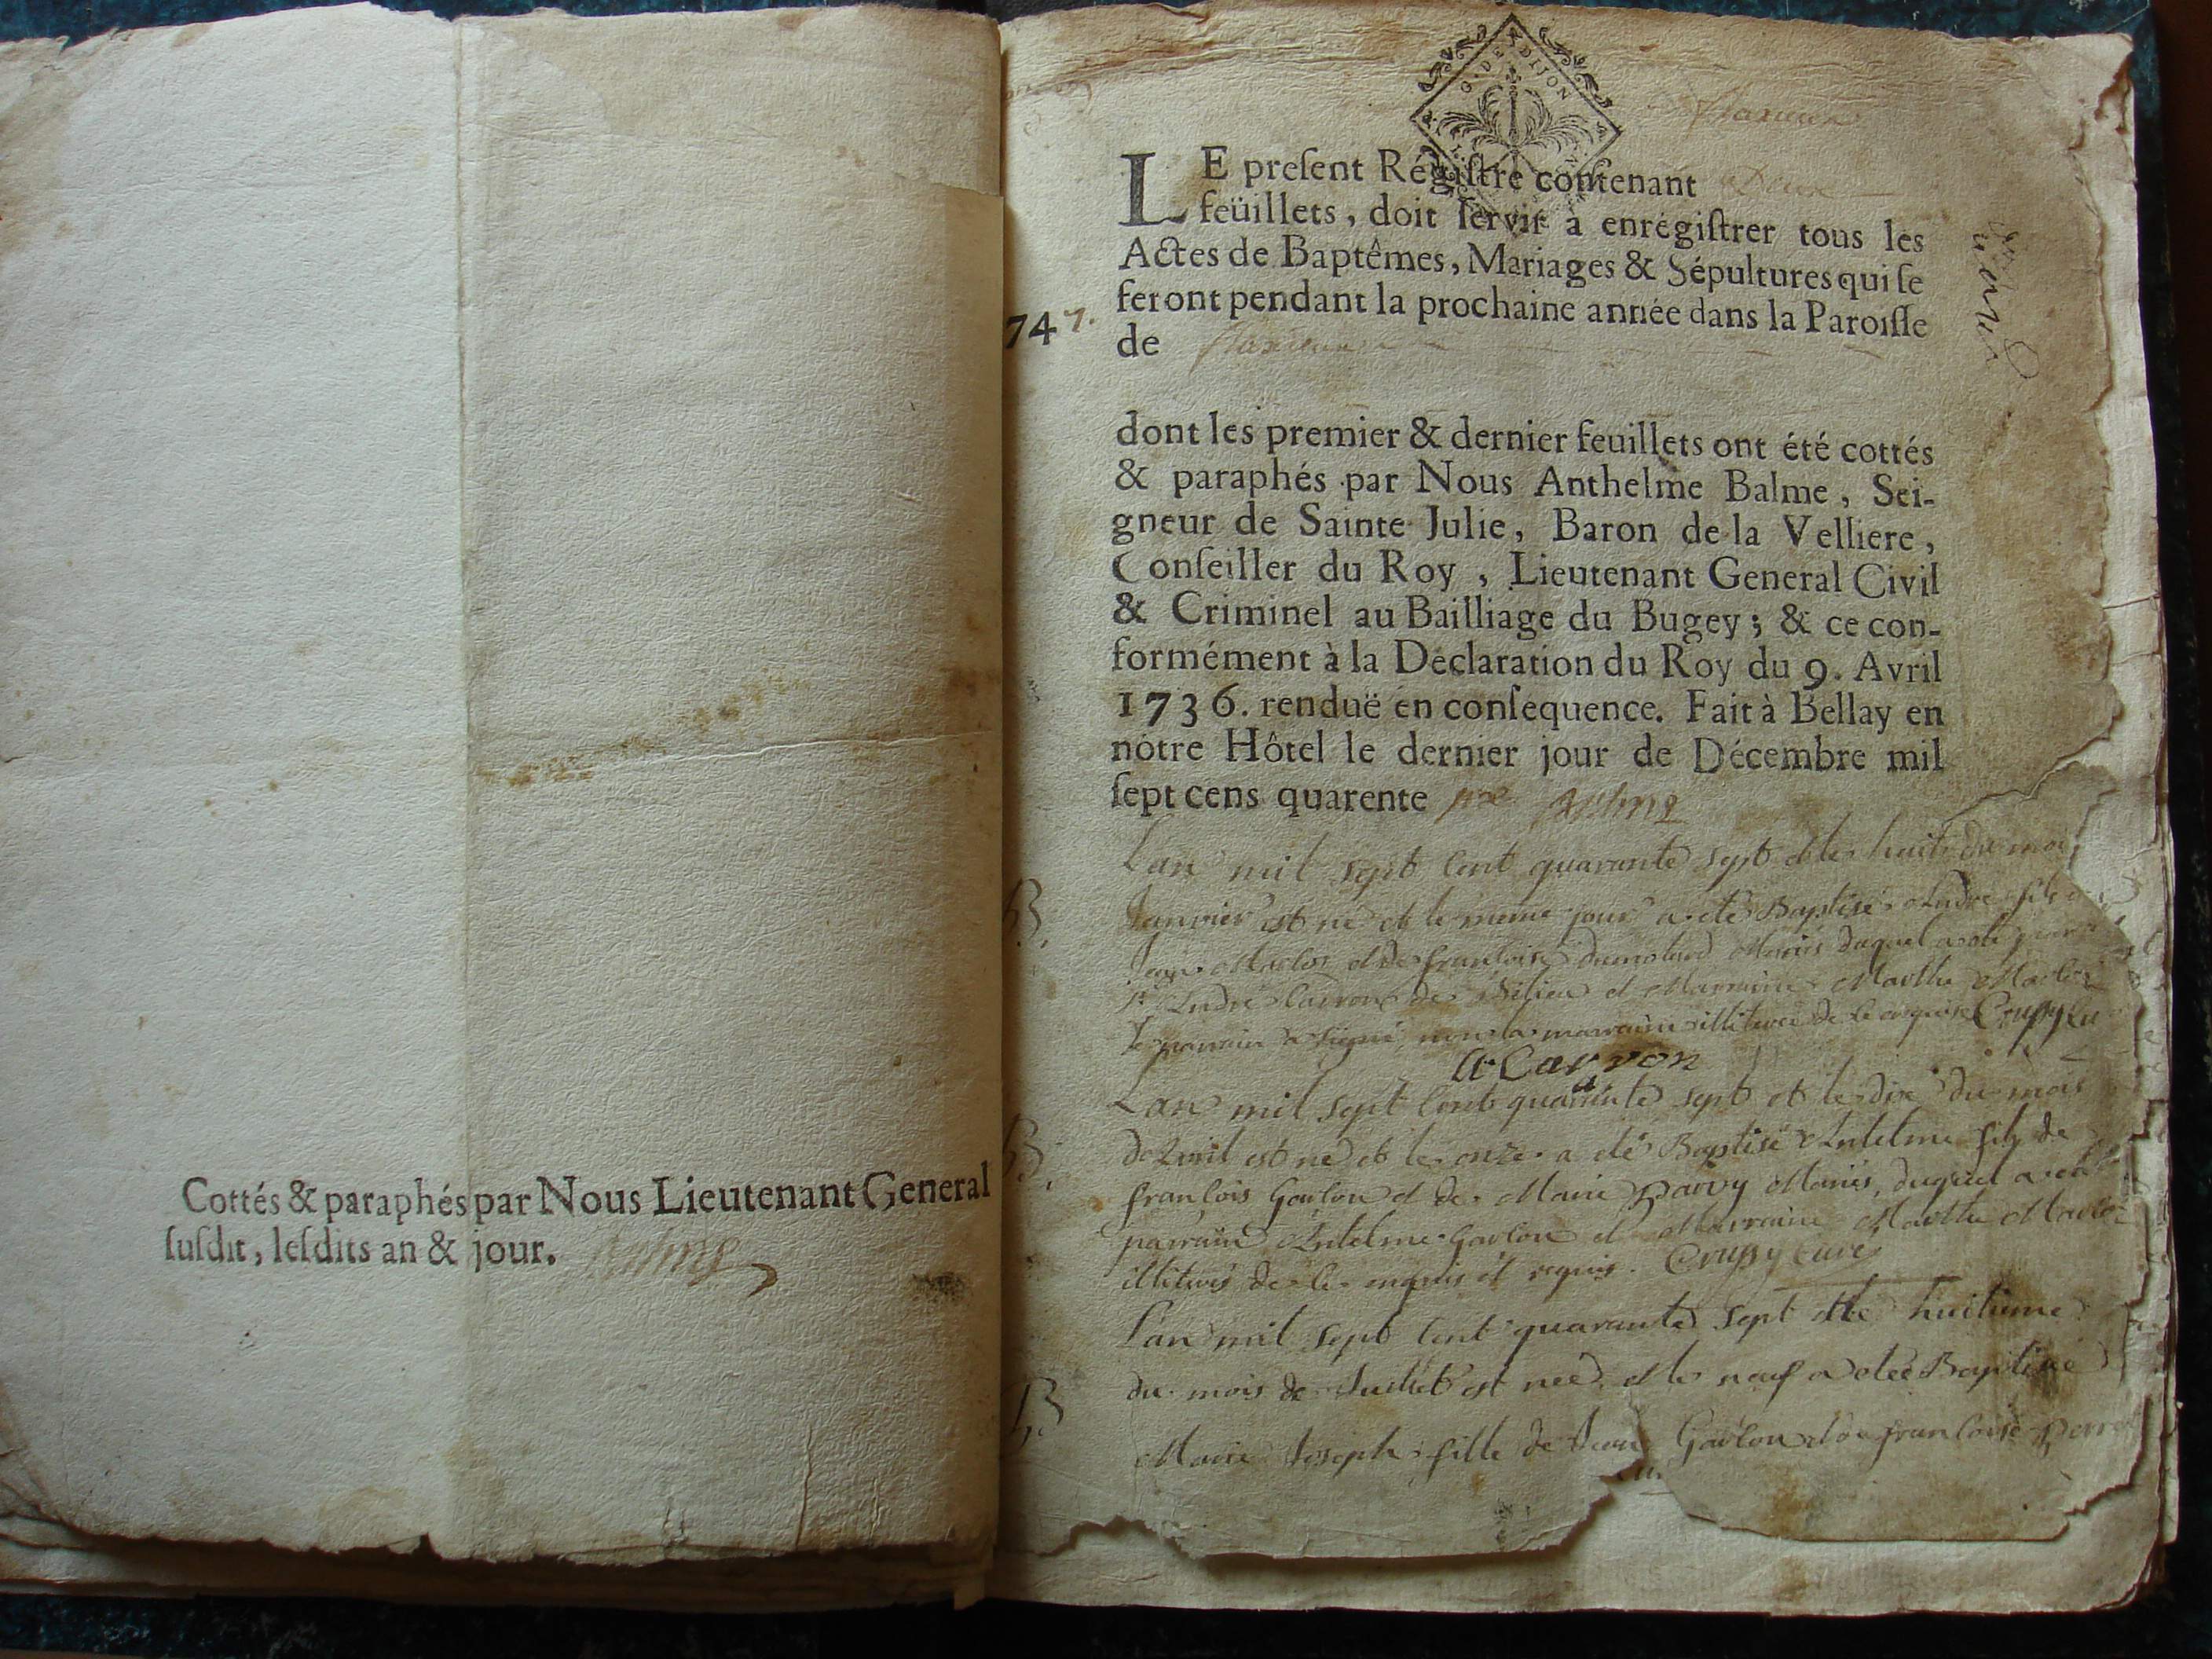 Cottés & paraphés par Nous Lieutenant General
ſuſdit, leſdits an & jour.
G. DE DIJON
LE preſent Régiſtre contenant Deux
feüillets, doit ſervir à enrégiſtrer tous les
Actes de Baptêmes, Mariages & Sépultures qui ſe
feront pendant la prochaine année dans la Paroiſſe
747.
de
dont les premier & dernier feuillets ont été cottés
& paraphés par Nous Anthelme Balme, Sei-
gneur de Sainte Julie, Baron de la Velliere,
Conſeiller du Roy, Lieutenant General Civil
& Criminel au Bailliage du Bugey; & ce con-
formément à la Déclaration du Roy du 9. Avril
1736. renduë en conſequence. Fait à Bellay en
nôtre Hôtel le dernier jour de Décembre mil
ſept cens quarente six Balme
Lan mil sept cent quarante sept et le huit du mois
B. Janvier est né et le meme jour a eté Baptisé André fils
Jean et de francoise Mariés duquel a eté parrain
Sr André Carron de et Marraine Marthe
le parrain a signé non la marraine illiterée de ce enquise Crussy Cu
A Carron
Lan mil sept cent quarante sept et le dix du mois
B. davril est né et le onze a eté Baptisé Antelme fils de
francois Garlon et de Marie Parvy Mariés, duquel a eté
parrain Antelme Garlon et Marraine Marthe
illiterés de ce enquis et requis. Crussy curé
Lan mil sept cent quarante sept et le huitieme
du mois de Juillet est née et le neuf a eteé Baptisée
B. Marie Joseph fille de Jean Garlon et de francoise